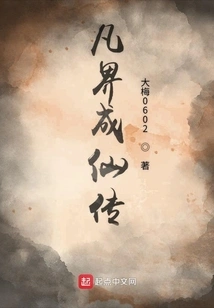 凡界成仙传
大梅0602◎著
起点中文网